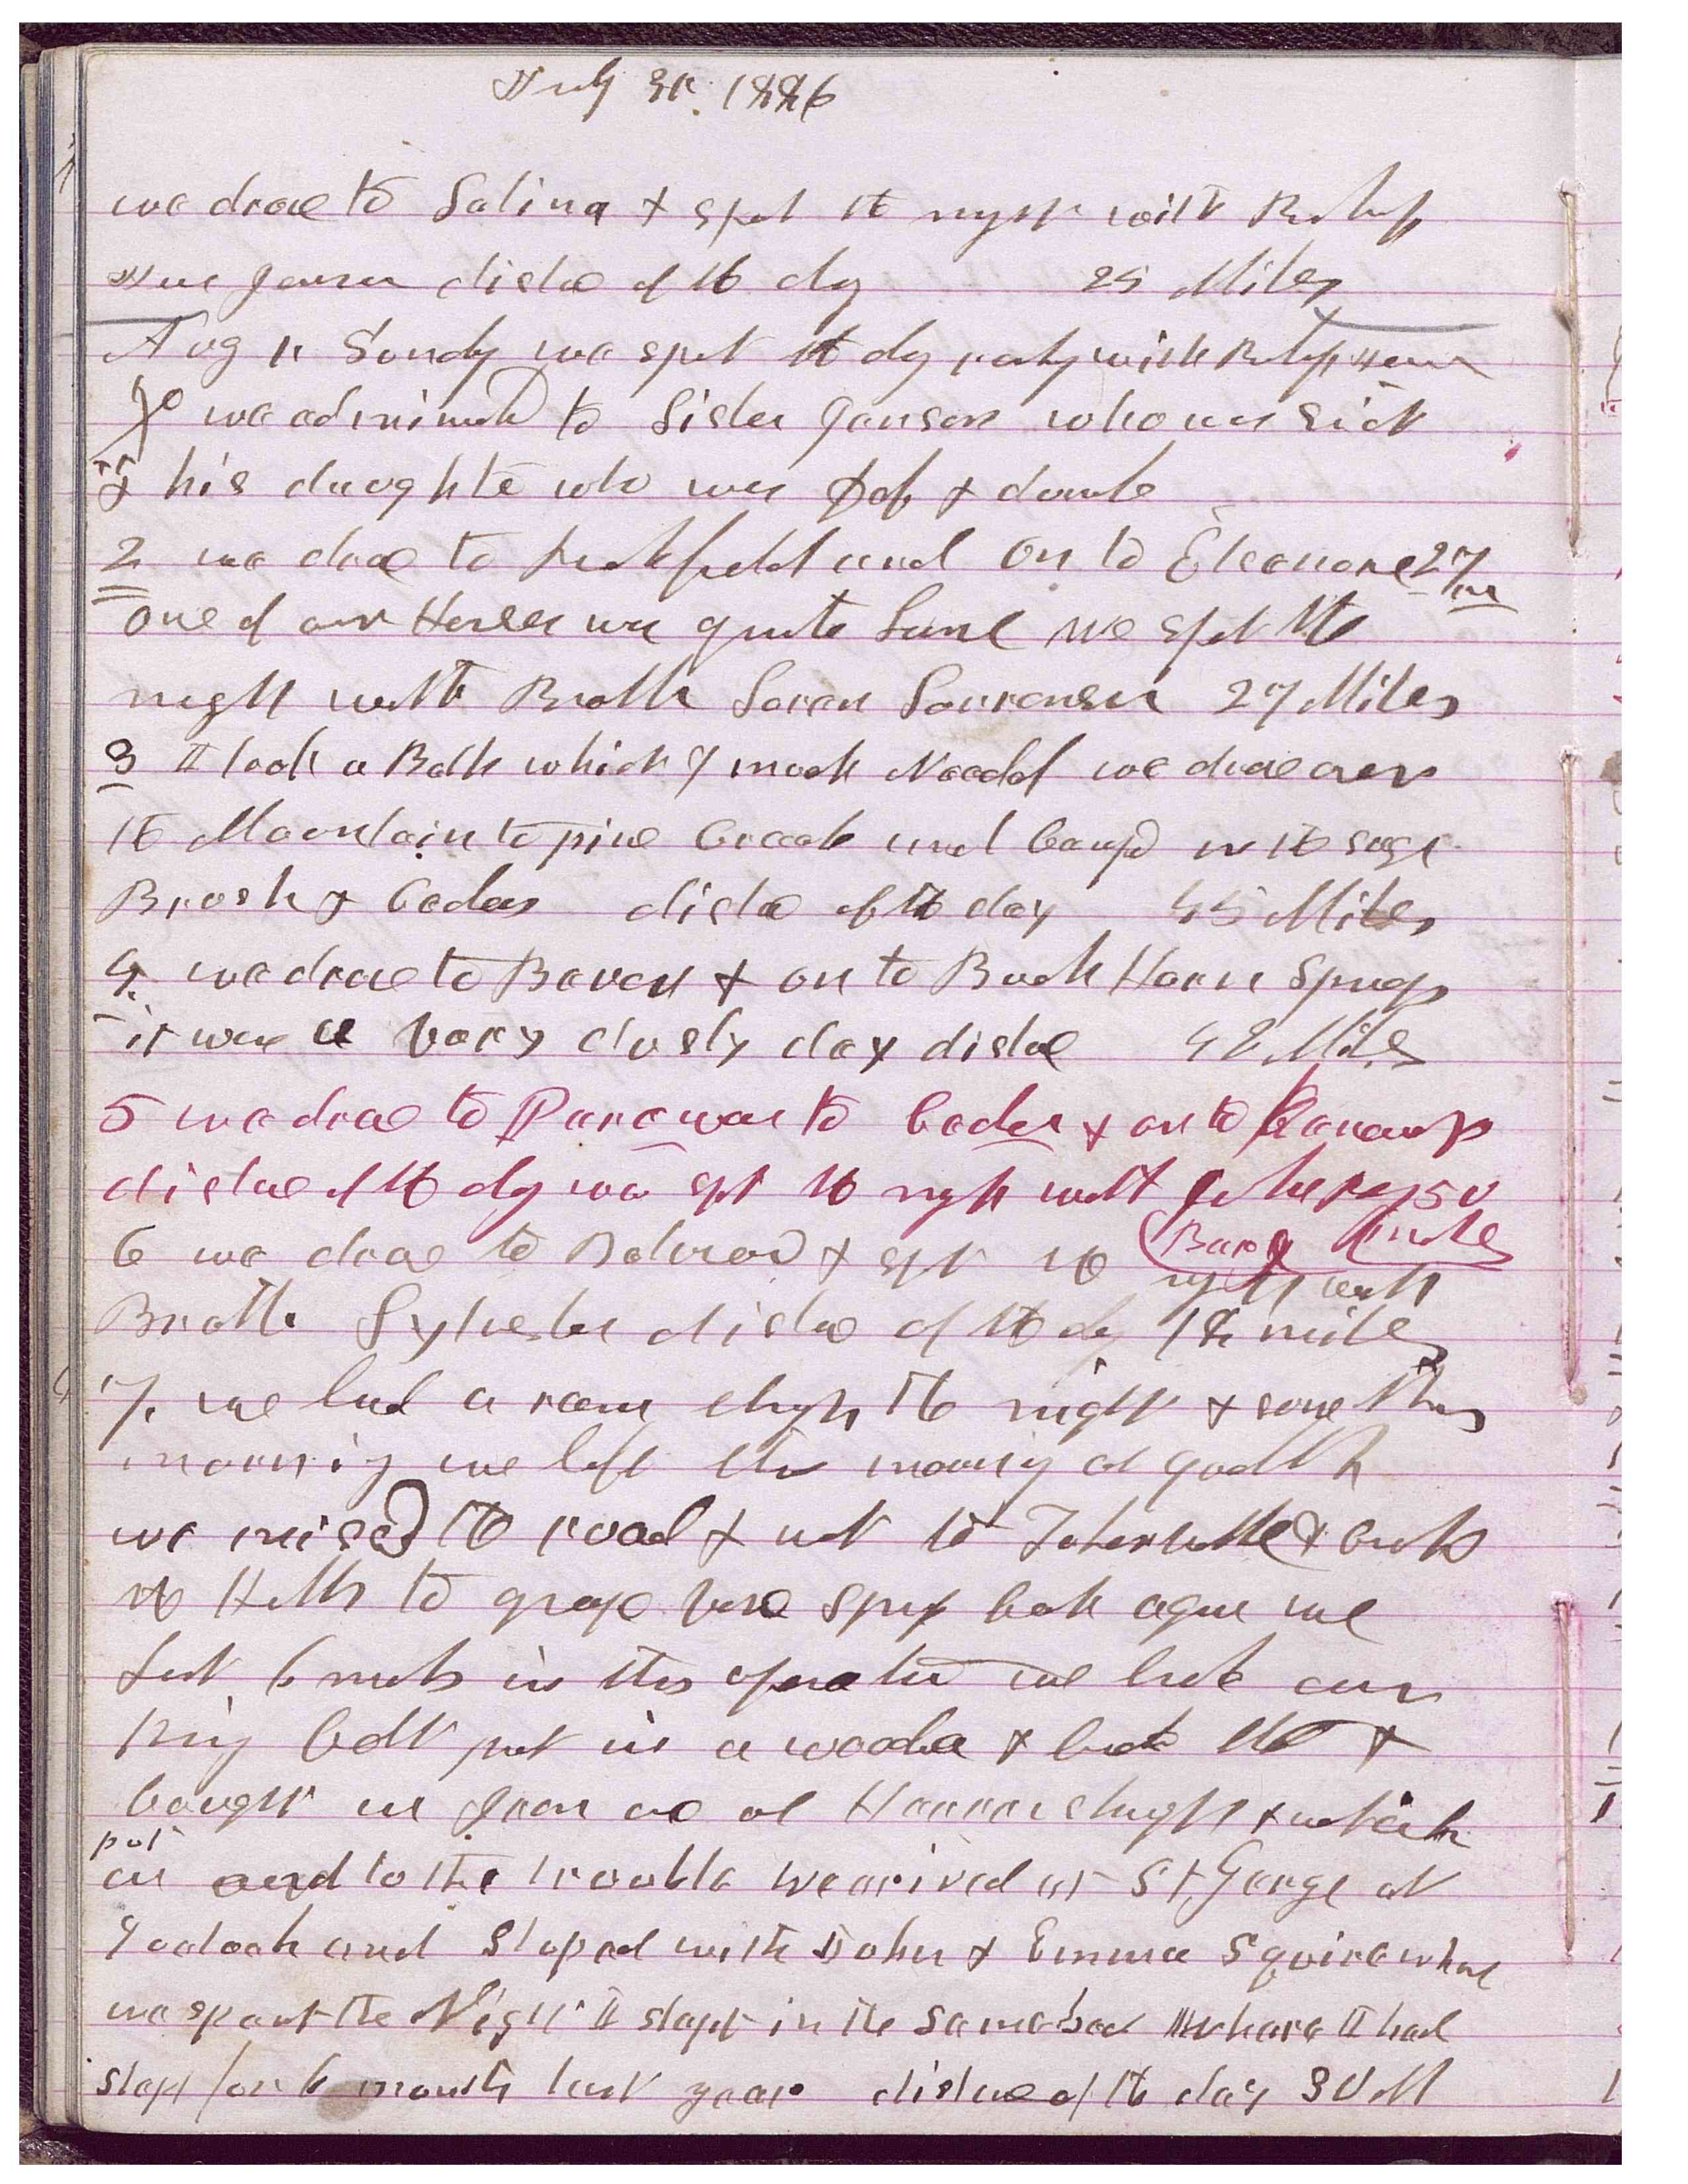 July 31. 1886
we drove to Salina & spent the night with Bishop
Jens Jenson distance of the day 25 Miles
Aug 1. Sundy we spent the dy with Bishop
we administed to Sister Janson who was sick
& his daughter who was & dumb
2 we drove to and on to Eleanore 27 m
one of our Horses was quite Lame we spent the
night with Brother Soren Sorrensen 27 Miles
3 I took a Bath which I much Needed we drove over
the Mountain to pine Creek and Camped in the sage
Brush & Ceders distance of the day 45 Miles
4. we drove to Bever & on to Buck Horn Springs
it was a very dusty day distance 42 Miles
5 we drove to Parawan to Ceder & on to Kanarah
distance of the dy we spent the night with 50
miles
6 we drove to Belview & spt the night with
Brother Sylvester distance of the dy 18 miles
7. we had a rainy through the night & some this
morning we left this morning at
we missed the road & went to Tokerville & back
the Hills to grape vine spring back again we
lost 6 miles in this operation we broke our
King bolt put in a wooden & broke that &
bought an Iron one at Harrisburgh & which
put
an end to the trouble we arived at St George at
9 oclock and Stoped with John & Emma Squire whare
we spent the Night I slept in the same bed whare I had
slept for 6 months last year distance of the day 30 M